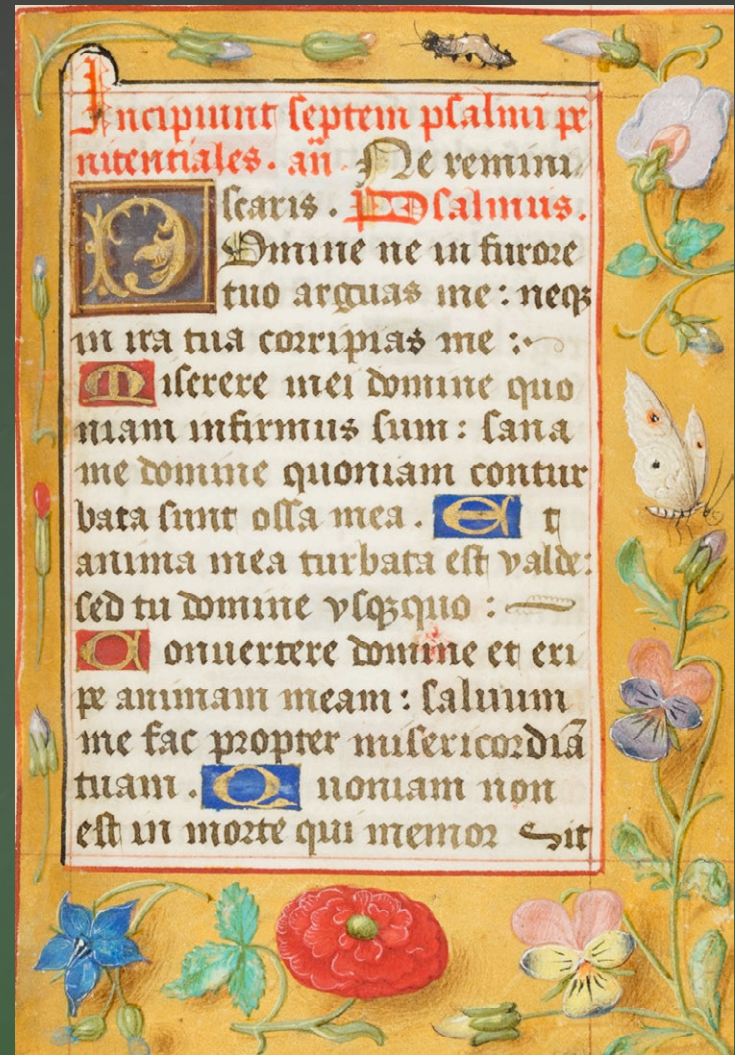 Incipiunt septem psalmi pe
nitentiales. añ. Ne remini
scaris. Psalmus.
Domine ne in furore
tuo arguas me: neqꝫ
in ira tua corripias me:
Miserere mei domine quo
niam infirmus sum: sana
me domine quoniam contur
bata sunt ossa mea. Et
anima mea turbata est valde:
sed tu domine vsqꝫquo:
Conuertere domine et eri
pe animam meam: saluum
me fac propter misericordiã
tuam. Quoniam non
est in morte qui memor Sit